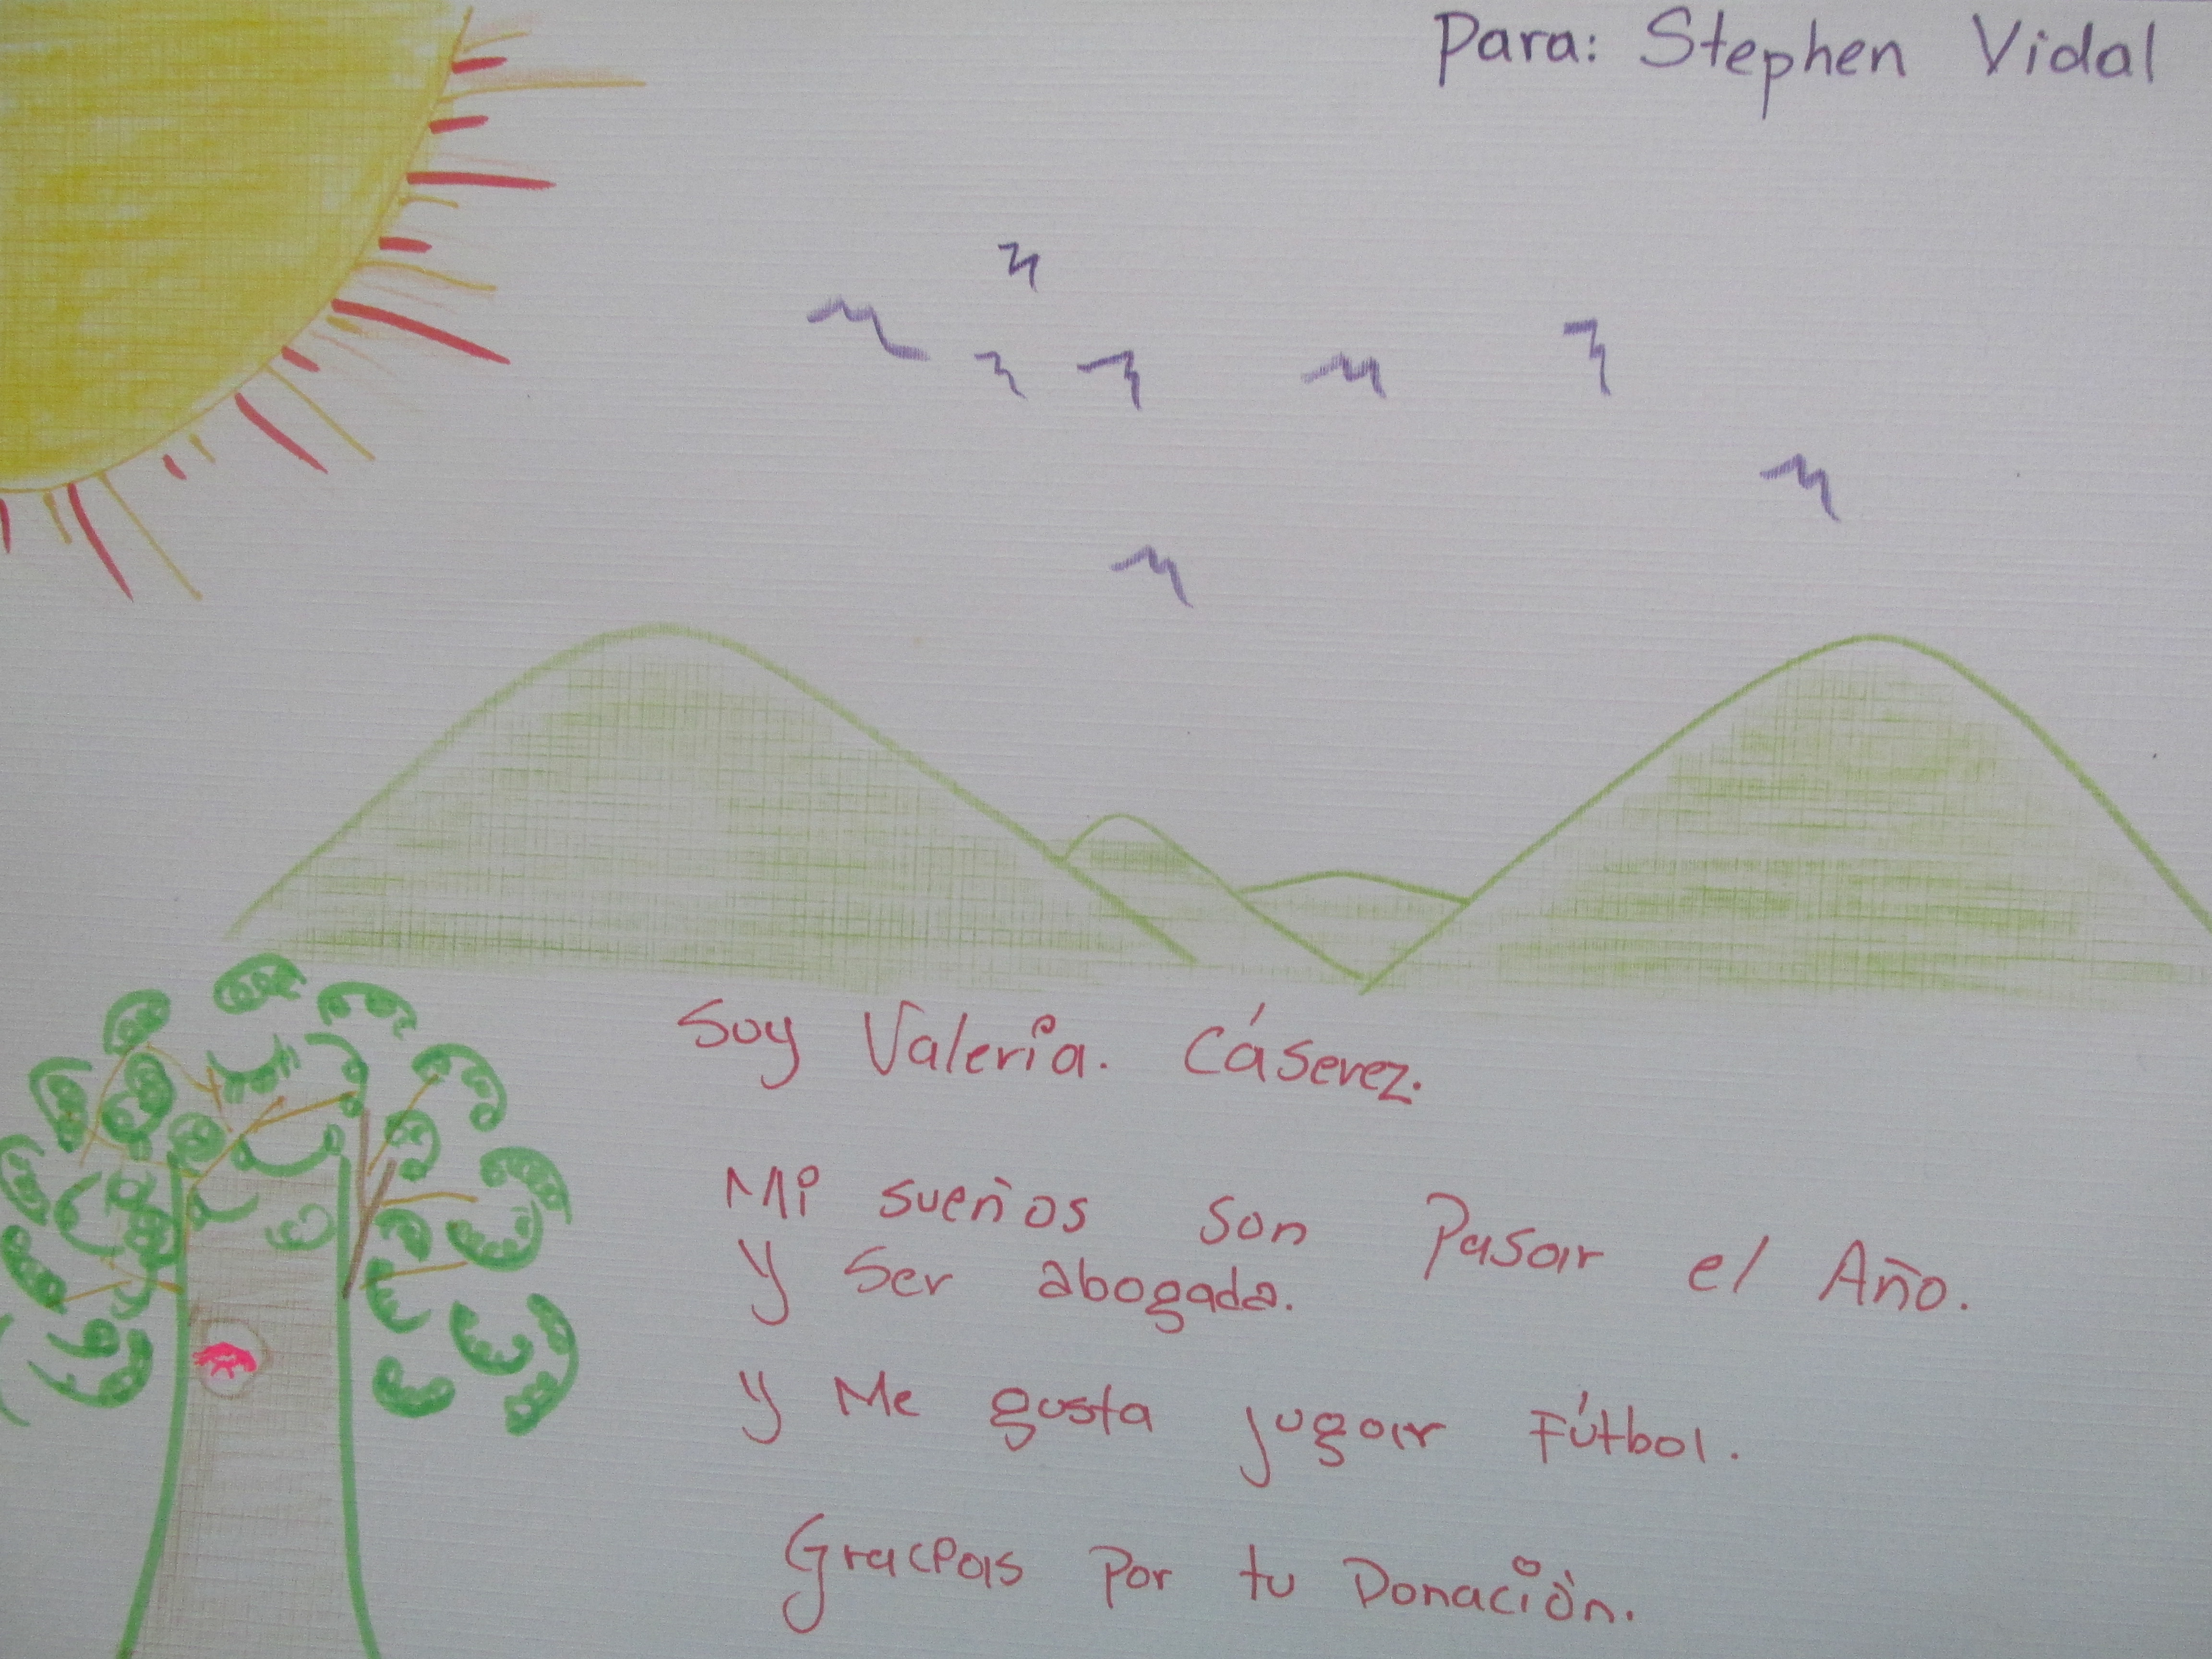 Para: Stephen Vidal
Soy Valeria. Cáserez.
Mi sueños son Pasar el Año.
y ser abogada.
y Me gusta jugar Fútbol.
Gracias Por tu Donación.